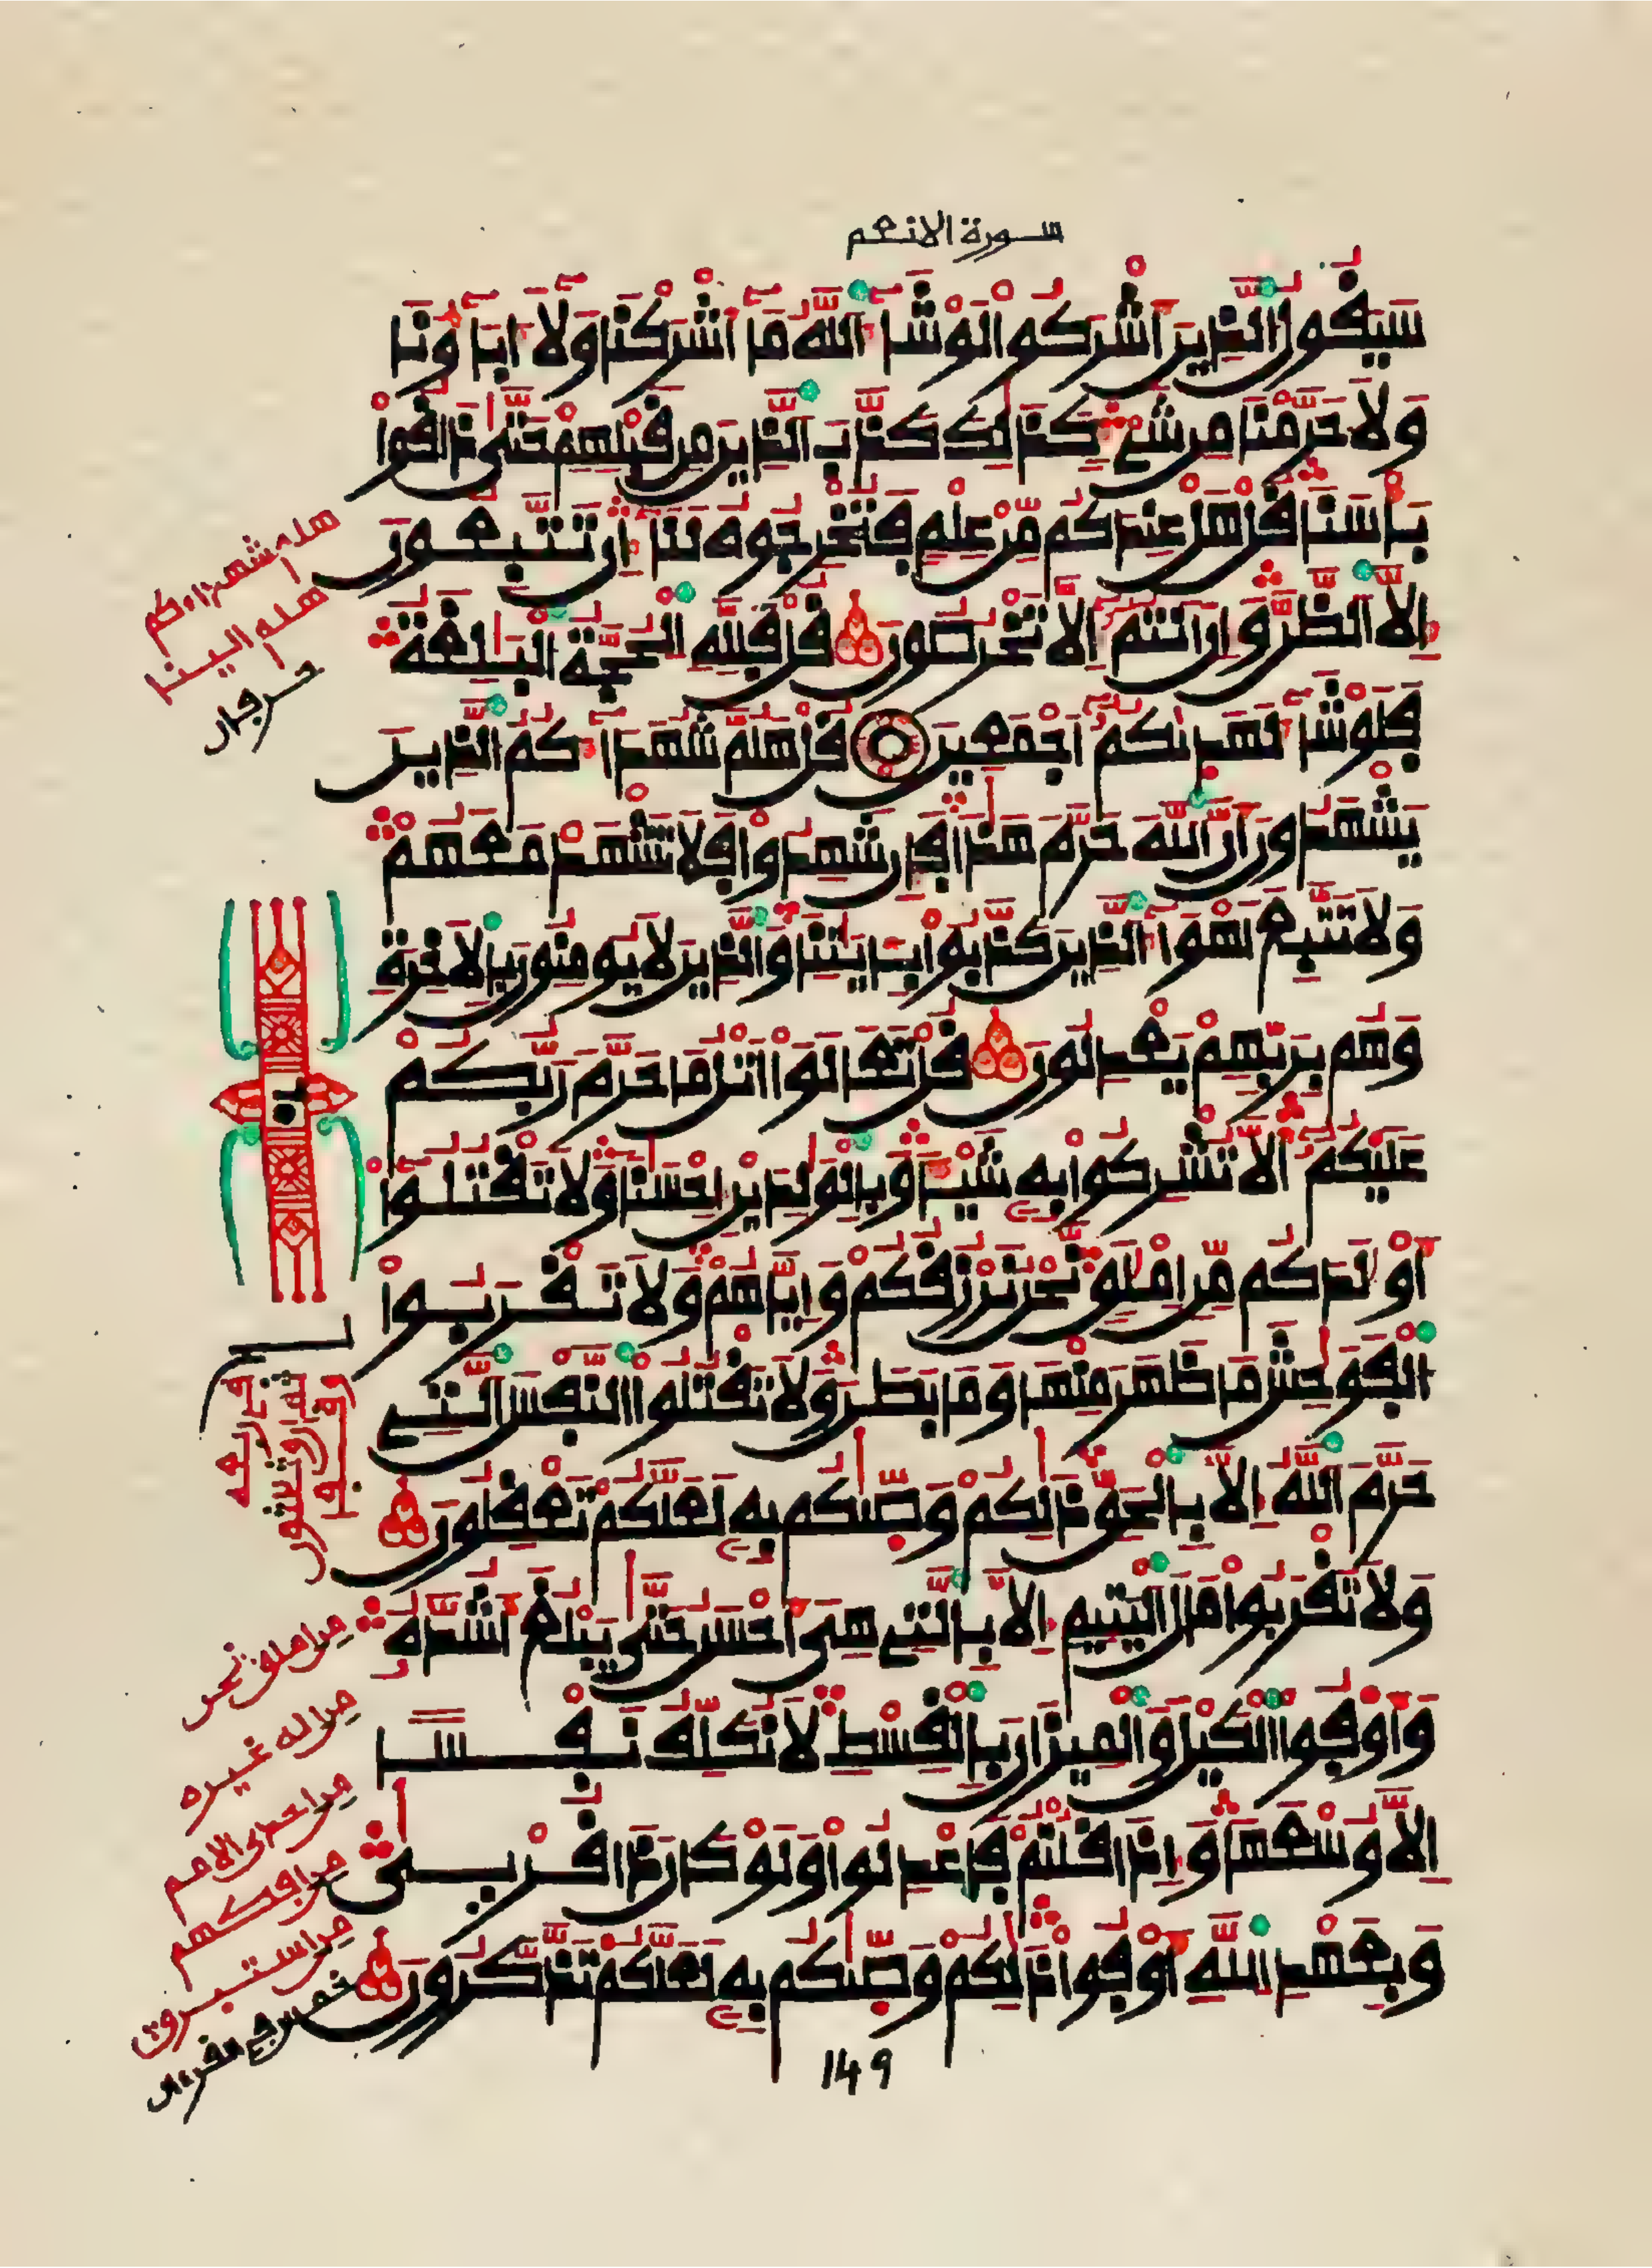 سورة الانعم
سَيَقُولُ الذِينَ أَشْرَكُوا لَوْ شَآءَ اللَّهُ مَآ أَشْرَكْنَا وَلَآ ءَابَآؤُنَا
وَلَا حَرَّمْنَا مِن شَيْءٍ كَذَٰلِكَ كَذَّبَ الذِينَ مِن قَبْلِهِمْ حَتَّىٰ ذَاقُوا
بَأْسَنَا قُلْ هَلْ عِندَكُم مِّنْ عِلْمٍ فَتُخْرِجُوهُ لَنَآ إِن تَتَّبِعُونَ
إِلَّا الظَّنَّ وَإِنْ أَنتُمْ إِلَّا تَخْرُصُونَ قُلْ فَلِلَّهِ الْحُجَّةُ الْبَٰلِغَةُ
فَلَوْ شَآءَ لَهَدَىٰكُمْ أَجْمَعِينَ قُلْ هَلُمَّ شُهَدَآءَكُمُ الذِينَ
يَشْهَدُونَ أَنَّ اللَّهَ حَرَّمَ هَٰذَا فَإِن شَهِدُوا فَلَا تَشْهَدْ مَعَهُمْ
وَلَا تَتَّبِعْ أَهْوَآءَ الذِينَ كَذَّبُوا بِـَٔايَٰتِنَا وَالذِينَ لَا يُومِنُونَ بِالْأَخِرَةِ
وَهُم بِرَبِّهِمْ يَعْدِلُونَ قُلْ تَعَالَوْا أَتْلُ مَا حَرَّمَ رَبُّكُمْ
عَلَيْكُمْ أَلَّا تُشْرِكُوا بِهِ شَيْـًٔا وَبِالْوَٰلِدَيْنِ إِحْسَٰنًا وَلَا تَقْتُلُوا
أَوْلَٰدَكُم مِّنِ امْلَٰقٍ نَّحْنُ نَرْزُقُكُمْ وَإِيَّاهُمْ وَلَا تَقْرَبُوا
الْفَوَٰحِشَ مَا ظَهَرَ مِنْهَا وَمَا بَطَنَ وَلَا تَقْتُلُوا النَّفْسَ التِي
حَرَّمَ اللَّهُ إِلَّا بِالْحَقِّ ذَٰلِكُمْ وَصَّىٰكُم بِهِ لَعَلَّكُمْ تَعْقِلُونَ
وَلَا تَقْرَبُوا مَالَ الْيَتِيمِ إِلَّا بِالتِي هِيَ أَحْسَنُ حَتَّىٰ يَبْلُغَ أَشُدَّهُ
وَأَوْفُوا الْكَيْلَ وَالْمِيزَانَ بِالْقِسْطِ لَا نُكَلِّفُ نَفْسًا
إِلَّا وُسْعَهَا وَإِذَا قُلْتُمْ فَاعْدِلُوا وَلَوْ كَانَ ذَا قُرْبَىٰ
وَبِعَهْدِ اللَّهِ أَوْفُوا ذَٰلِكُمْ وَصَّىٰكُم بِهِ لَعَلَّكُمْ تَذَّكَّرُونَ
هلم شهداءكم
هلم الينا
حرفان
من املق نحن
من اله غيره
من احدى الامم
من افكهم
من استبرق
149